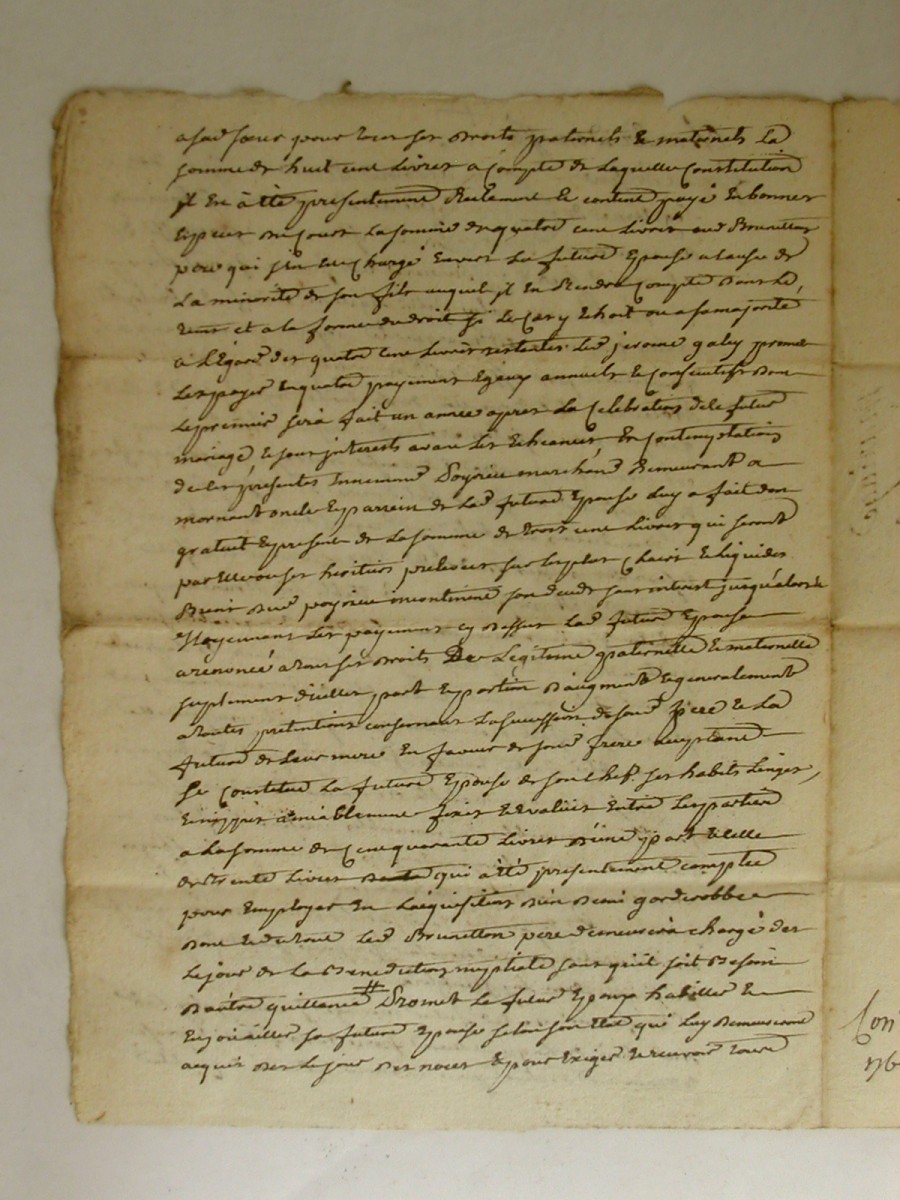 a sad soeur pour tous ses droits paternels & maternels la
somme de huit cent Livres a Compte de Laquelle Constitution
il En à été presentement Reelement & content payé En bonnes
Especes du Cours La somme de quatre cent Livres aud Brunetton
pere qui s'en est Chargé Envers La future Epouse a Cause de
La minorité de son fils auquel il En Rendra Compte dans le
tems et a la forme du droit si Le Cas y Echoit ou a sa majorité
a L'Egard des quatre cent Livres restantes Led jerome galey promet
Les payer En quatre payement Egaux annuels & Consecutifs dont
Le premier sera fait un année apres La Celebration de le futur
mariage, & sans jnterests avant Les Echeances En Contemplation
de Ces presentes poyrieu marchand Demeurant a
mornant oncle & parrein de Lad future Epouse Luy a fait don
gratuit & present de La somme de trois cent Livres qui seront
par Elle ou ses heritiers prelevés sur Les plus Clairs & Liquides
Biens dud poyrieu incontinent son deces sans interest jusqu'alors
Moyennant Les payement cy dessus Lad future Epouse
a renoncé a tous ses droits De Legitime paternelle & maternelle
suplement d'icelles part & portion d'augment & generalement
a toutes pretentions concernant La succession de sond pere & La
future de Leur mere En faveur de sond frere acceptant
Se Constitue La future Epouse de son Chef ses habits Linges,
& nippes amiablement fixés & Evalués Entre Les parties
a La somme de Cent quarante Livres d'une part & celle
de trente Livres qui à été presentement comptée
pour Employer En L'acquisition d'un demi garderobbe
dont & du tout Led Brunetton pere demeurera chargé des
Le jour de La Benediction nuptiale sans qu'il soit Besoin
d'autre quittance # Promet Le futur Epoux habiller &
Enjoiailler sa future Epouse selon son Etat qui Luy Demeureront
acquis des Le jour des noces & pour Exiger & recevoir tout
Con
176